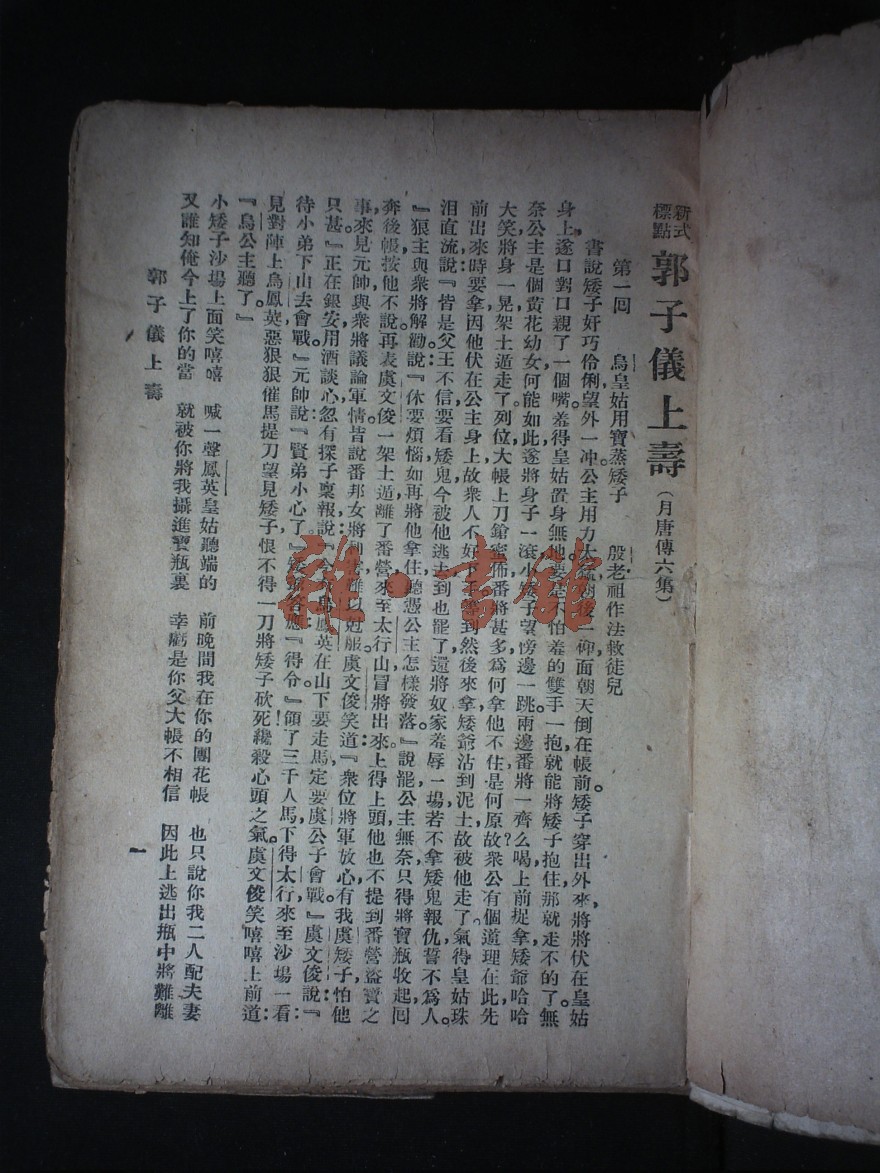 新式標點 郭子儀上壽 (月唐傳六集)
第一回 烏皇姑用寶蒸矮子 殷老祖作法救徒兒
書說矮子奸巧伶俐,望外一冲,公主用力太猛,朝後一仰,面朝天倒在帳前。矮子穿出外來,將將伏在皇姑
身上,遂口對口親了一個嘴,羞得皇姑置身無地,要是不怕羞的雙手一抱,就能將矮子抱住,那就走不的了。無
奈公主是個黃花幼女,何能如此,遂將身子一滾,小矮子望傍邊一跳,兩邊番將一齊么喝,上前捉拿,矮爺哈哈
大笑,將身一晃,架土遁走了。列位,大帳上刀鎗密佈,番將甚多,為何拿他不住,是何原故?衆公有個道理在此,先
前出來時要拿,因他伏在公主身上,故衆人不好下手,等到然後來拿,矮爺沾到泥土,故被他走了。氣得皇姑珠
泪直流,說:『皆是父王不信,要看矮鬼,今被他逃去,到也罷了,還將奴家羞辱一場,若不拿矮鬼報仇,誓不為人。』
『狼主與衆將解勸說:『休要煩惱,如再將他拿住,聽憑公主怎樣發落。』說罷,公主無奈,只得將寶瓶收起,回
奔後帳,按他不說。再表虞文俊一架土遁,離了番營,來至太行山,冒將出來,上得上頭,他也不提到番營盜寶之
事,來見元帥,與衆將議論軍情,皆說番邦女將利害,難以尅服,虞文俊笑道:『衆位將軍放心,有我虞矮子,怕他
只甚。』正在銀安用酒談心,忽有探子禀報說:『公主烏鳳英在山下要走馬,定要虞公子會戰。』虞文俊說:『
待小弟下山去會戰。』元帥說:『賢弟小心了。』矮爺答應:『得令。』領了三千人馬,下得太行,來至沙場一看:
見對陣上烏鳳英惡狠狠催馬提刀,望見矮子,恨不得一刀將矮子砍死,纔殺心頭之氣。虞文俊笑嘻嘻上前道:
『烏公主聽了。』
小矮子沙場上面笑嘻嘻 喊一聲鳳英皇姑聽端的 前晚間我在你的團花帳 也只說你我二人配夫妻
又誰知俺今上了你的當 就被你將我攝進寶瓶裏 幸虧是你父大帳不相信 因此上逃出瓶中將難離
郭子儀上壽
一
雜·書館